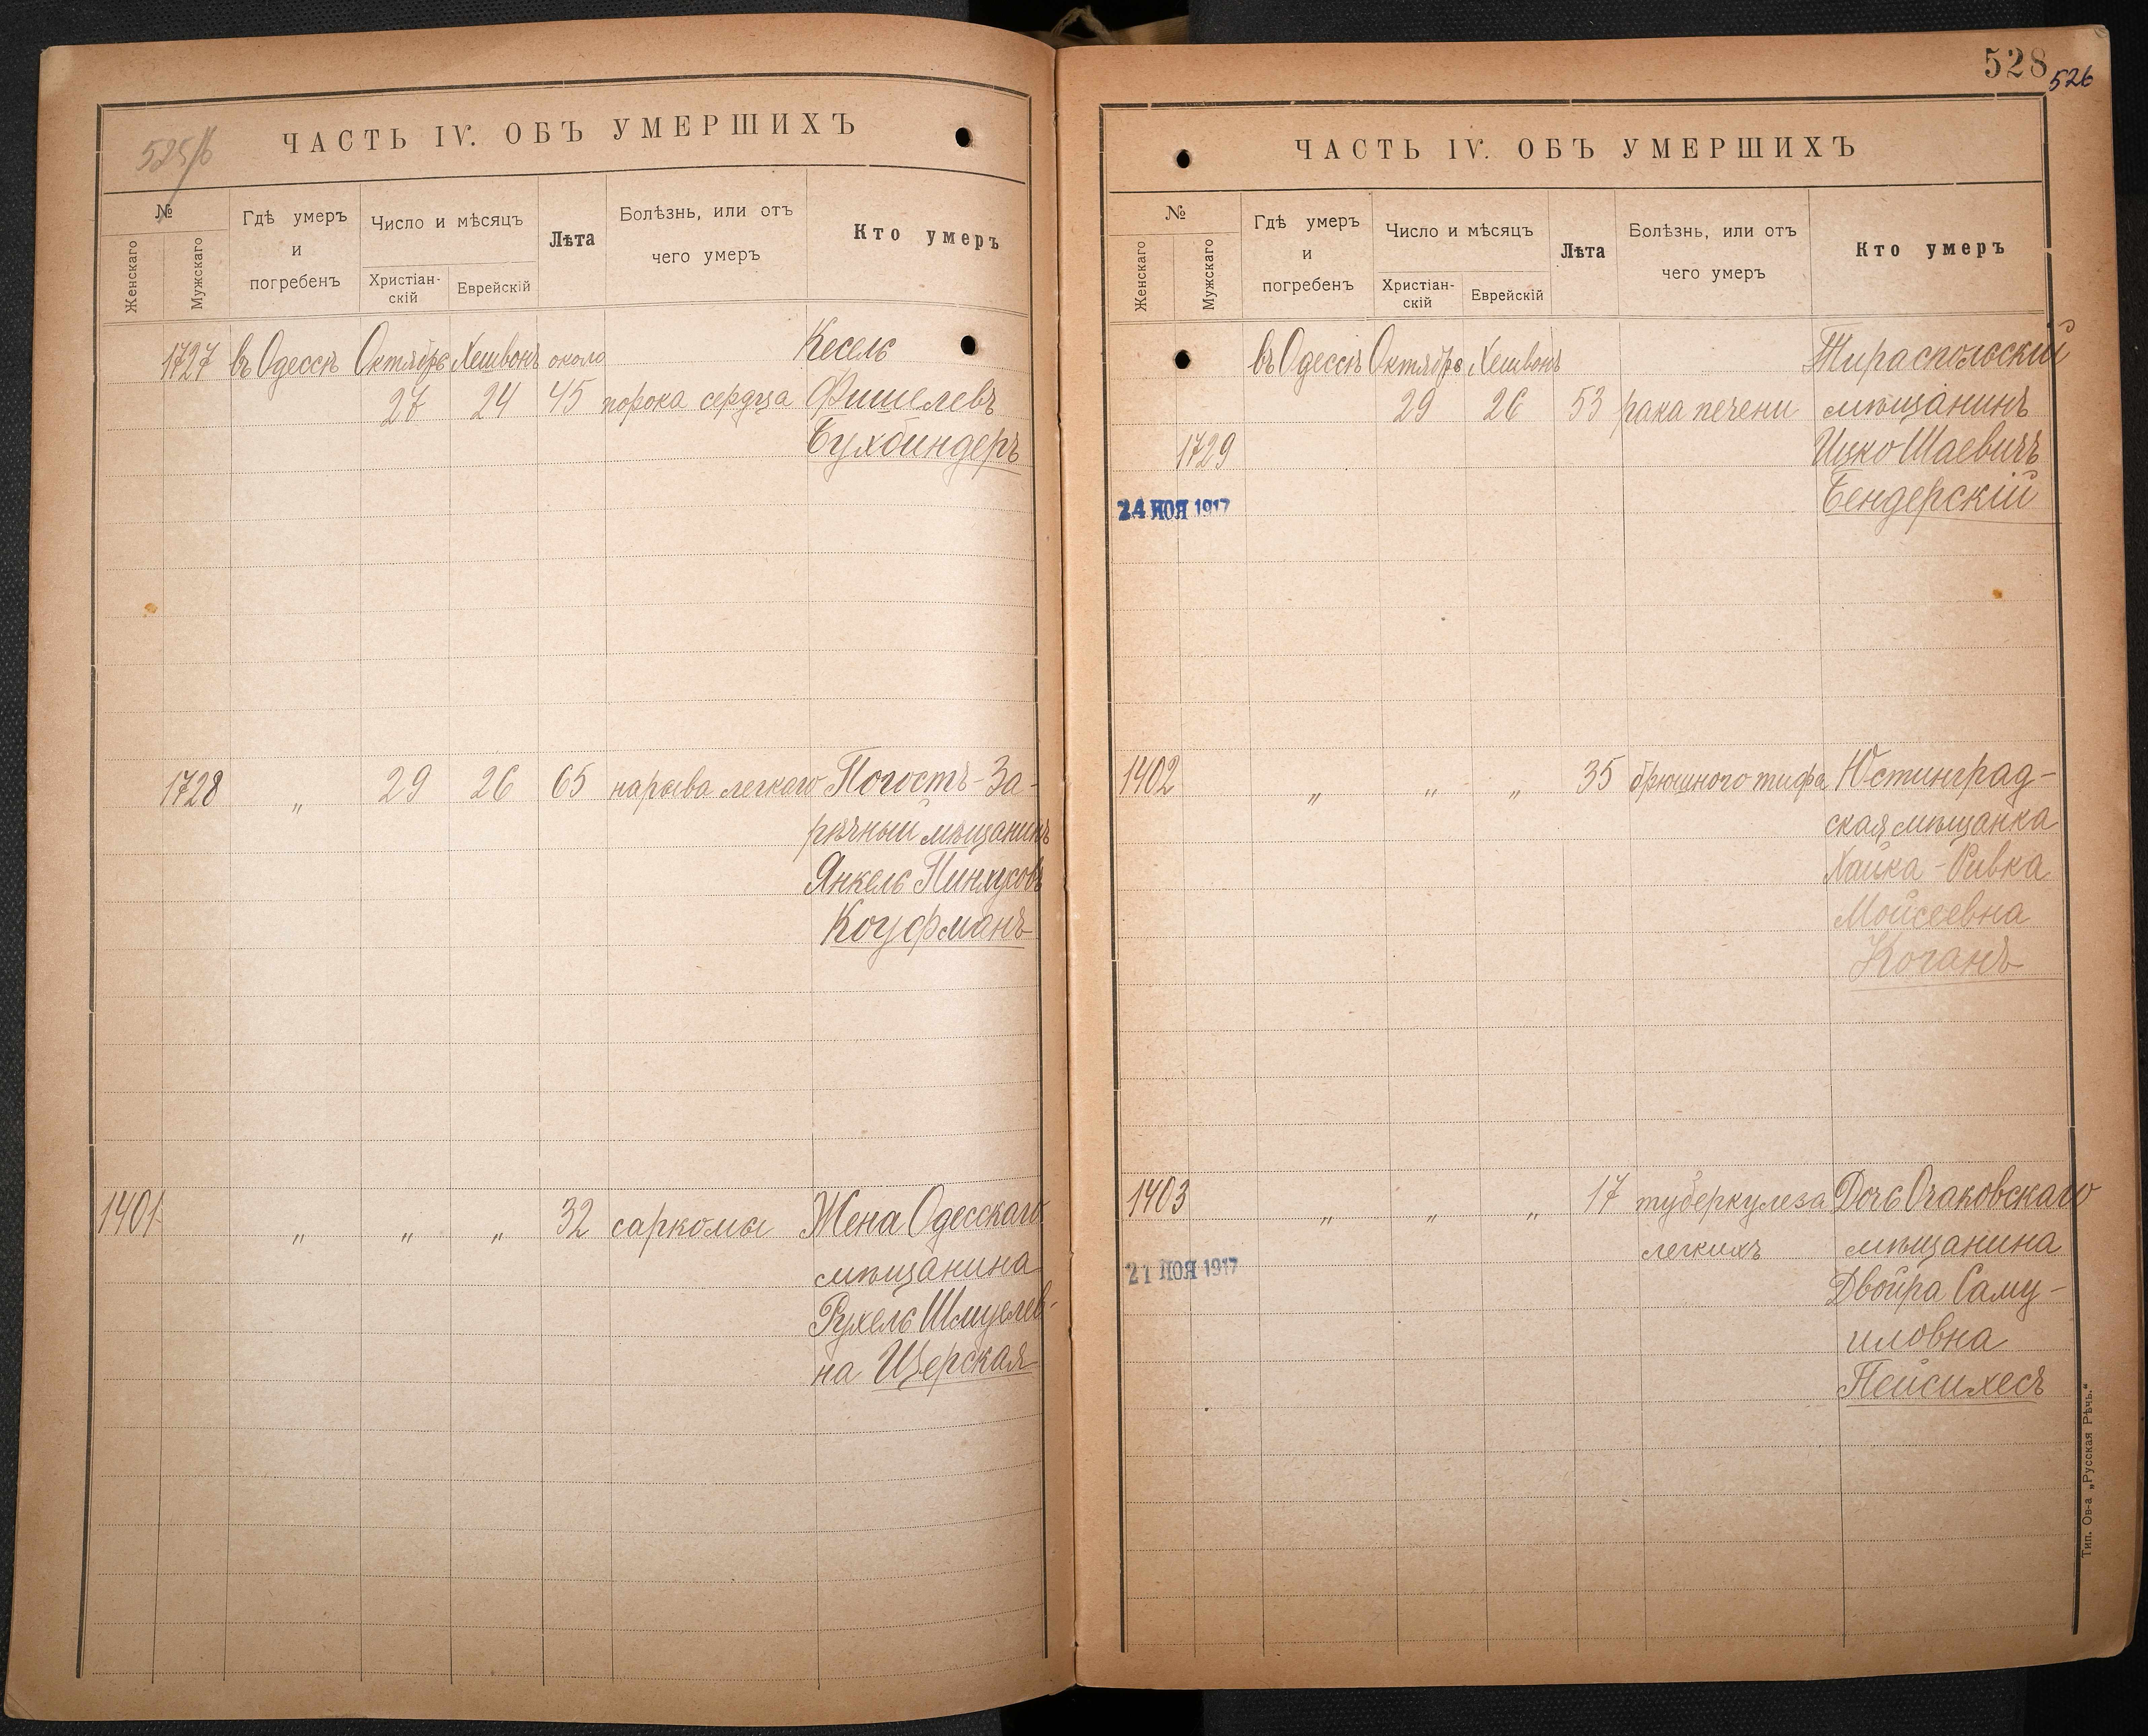 525/б
ЧАСТЬ IV. ОБЪ УМЕРШИХЪ
№
Женскаго
Мужскаго
Гдѣ умеръ и погребенъ
Число и мѣсяцъ
Христіан-скій
Еврейскій
Лѣта
Болѣзнь, или отъ чего умеръ
Кто умеръ
1727 въ Одессѣ Октябрь Хешвонъ около Кесель
27 24 45 порока сердца Фишелевъ
Бухбиндеръ
1728 „ 29 26 65 нарыва легкаго Погостъ-За-
рѣчный мѣщанинъ
Янкель Пинхусовъ
Коуфманъ
1401 „ „ „ 32 саркомы Жена Одесскаго
мѣщанина
Рухель Шмулев-
на Церская
528
526
ЧАСТЬ IV. ОБЪ УМЕРШИХЪ
№
Женскаго
Мужскаго
Гдѣ умеръ и погребенъ
Число и мѣсяцъ
Христіан-скій
Еврейскій
Лѣта
Болѣзнь, или отъ чего умеръ
Кто умеръ
въ Одессѣ Октябрь Хешвонъ Тираспольскій
29 26 53 рака печени мѣщанинъ
1729 Ицко Шаевичъ
24 НОЯ 1917 Бендерскій
1402 „ „ „ 35 брюшного тифа Юстинград-
ская мѣщанка
Хайка-Ривка
Мойсеевна
Коганъ
1403 „ „ „ 17 туберкулеза Дочь Очаковскаго
легкихъ мѣщанина
21 НОЯ 1917 Двойра Саму-
иловна
Пейсихесъ
Тип. Ов-а „Русская Рѣчь."